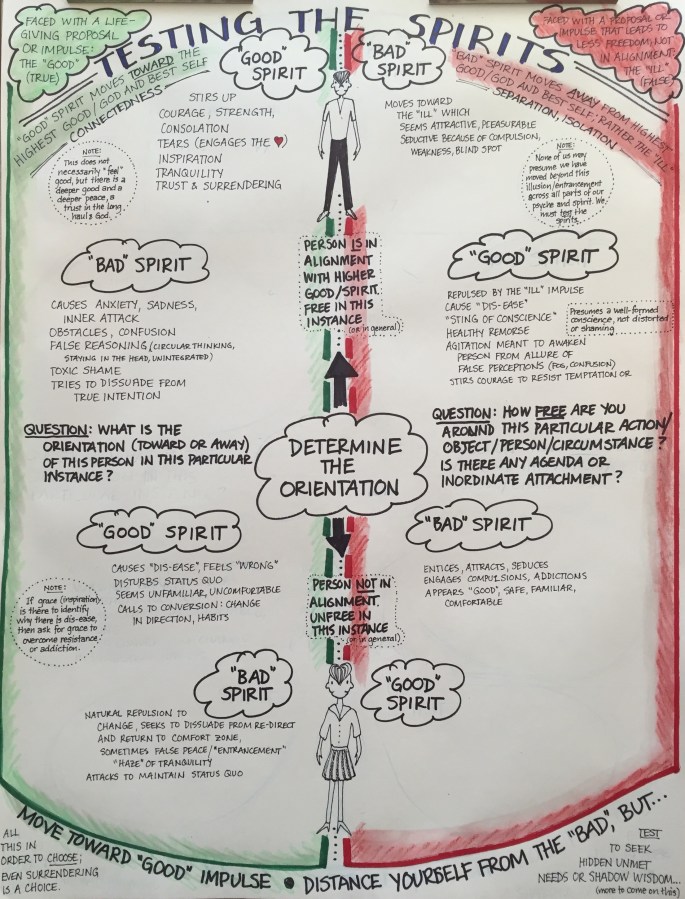 TESTING THE SPIRITS
FACED WITH A LIFE-
GIVING PROPOSAL
OR IMPULSE:
THE "GOOD"
(TRUE)
FACED WITH A PROPOSAL OR
IMPULSE THAT LEADS TO
LESS FREEDOM, NOT
IN ALIGNMENT:
THE "ILL"
(FALSE)
"GOOD" SPIRIT MOVES TOWARD THE
HIGHEST GOOD/GOD AND BEST SELF
CONNECTEDNESS
"GOOD"
SPIRIT
STIRS UP
COURAGE, STRENGTH,
CONSOLATION
TEARS (ENGAGES THE ♥)
INSPIRATION
TRANQUILITY
TRUST & SURRENDERING
NOTE:
This does not
necessarily "feel"
good, but there is a
deeper good and a
deeper peace, a
trust in the long
haul & God.
"BAD"
SPIRIT
"BAD" SPIRIT MOVES AWAY FROM HIGHEST
GOOD/GOD AND BEST SELF; RATHER THE "ILL"
SEPARATION, ISOLATION
MOVES TOWARD
THE "ILL" WHICH
SEEMS ATTRACTIVE, PLEASURABLE
SEDUCTIVE BECAUSE OF COMPULSION,
WEAKNESS, BLIND SPOT
NOTE:
None of us may
presume we have
moved beyond this
illusion/entrancement
across all parts of our
psyche and spirit. We
must test the
spirits.
PERSON IS IN
ALIGNMENT
WITH HIGHER
GOOD/SPIRIT.
FREE IN THIS
INSTANCE
(or in general)
"BAD" SPIRIT
CAUSES ANXIETY, SADNESS,
INNER ATTACK
OBSTACLES, CONFUSION
FALSE REASONING (CIRCULAR THINKING,
STAYING IN THE HEAD, UNINTEGRATED)
TOXIC SHAME
TRIES TO DISSUADE FROM
TRUE INTENTION
"GOOD" SPIRIT
REPULSED BY THE "ILL" IMPULSE
CAUSE "DIS-EASE"
"STING OF CONSCIENCE"
HEALTHY REMORSE
AGITATION MEANT TO AWAKEN
PERSON FROM ALLURE OF
FALSE PERCEPTIONS (FOG, CONFUSION)
STIRS COURAGE TO RESIST TEMPTATION OR
Presumes a well-formed
conscience, not distorted
or shaming
QUESTION: WHAT IS THE
ORIENTATION (TOWARD OR AWAY)
OF THIS PERSON IN THIS PARTICULAR
INSTANCE?
DETERMINE
THE
ORIENTATION
QUESTION: HOW FREE ARE YOU
AROUND THIS PARTICULAR ACTION/
OBJECT/PERSON/CIRCUMSTANCE?
IS THERE ANY AGENDA OR
INORDINATE ATTACHMENT?
"GOOD" SPIRIT
CAUSES "DIS-EASE", FEELS "WRONG"
DISTURBS STATUS QUO
SEEMS UNFAMILIAR, UNCOMFORTABLE
CALLS TO CONVERSION: CHANGE
IN DIRECTION, HABITS
NOTE:
If grace (inspiration)
is there to identify
why there is dis-ease,
then ask for grace to
overcome resistance
or addiction.
"BAD" SPIRIT
ENTICES, ATTRACTS, SEDUCES
ENGAGES COMPULSIONS, ADDICTIONS
APPEARS "GOOD", SAFE, FAMILIAR,
COMFORTABLE
PERSON NOT IN
ALIGNMENT.
UNFREE IN
THIS INSTANCE
(or in general)
"BAD"
SPIRIT
NATURAL REPULSION TO
CHANGE, SEEKS TO DISSUADE FROM RE-DIRECT
AND RETURN TO COMFORT ZONE,
SOMETIMES FALSE PEACE/"ENTRANCEMENT"
"HAZE" OF TRANQUILITY
ATTACKS TO MAINTAIN STATUS QUO
"GOOD"
SPIRIT
MOVE TOWARD "GOOD" IMPULSE • DISTANCE YOURSELF FROM THE "BAD", BUT...
ALL
THIS IN
ORDER TO CHOOSE;
EVEN SURRENDERING
IS A CHOICE.
TEST
TO SEEK
HIDDEN UNMET
NEEDS OR SHADOW WISDOM...
(more to come on this)